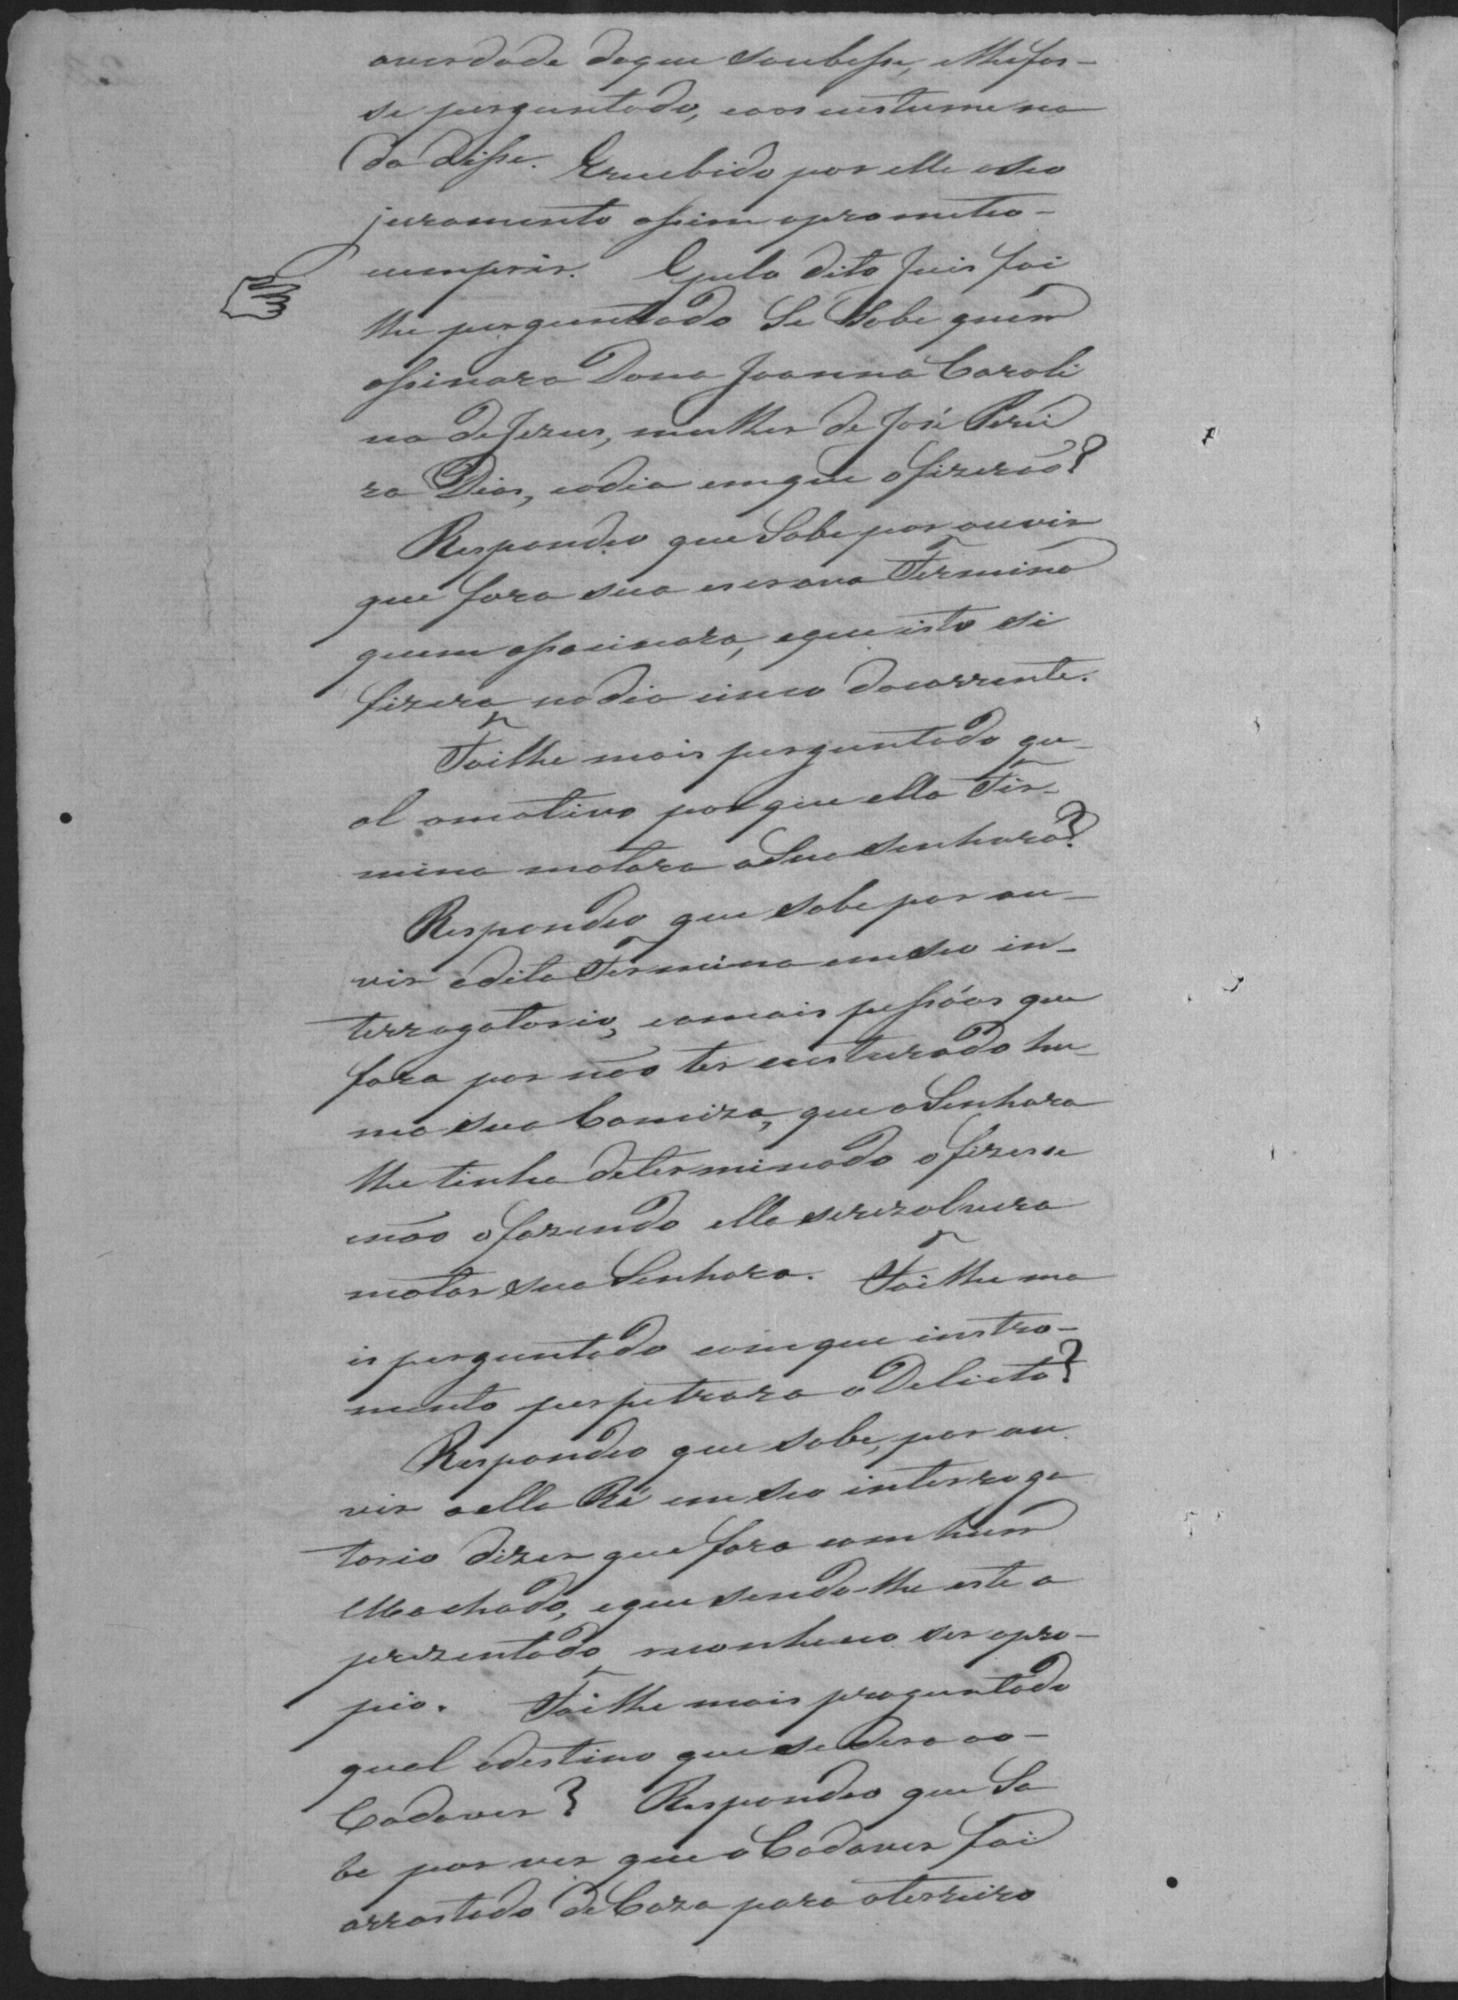 averdade doque soubesse, elhefos-
se perguntado, eaos custume na
da disse. Erecebido por elle oseo
juramento assim oprometeo
cumprir. Epelo dito Juis foi
lhe perguntado Se Sabe quem
assinara Dona Joanna Caroli
na de Jezus, mulher de José Perei
ra Dias, eodia emque ofizerão?
Respondeo que Sabe por ouvir
que fora sua escrava Fermina
quem assacinara, eque isto se
fizera nodia cinco docorrente.
Foilhe mais perguntado qu-
al omotivo porque ella Fir-
mina matara aSua Senhora?
Respondeo que sabe por ou-
vir adita Fermina emseo in-
terrogatorio, eamais pessôas que
fora por não ter custurado hu-
ma sua Camiza, que aSenhora
lhe tinha determinado ofizesse
enão ofazendo ella serezolvera
matar sua Senhora. Foilhe ma
is perguntado comque instro-
mento perpetrara oDelicto?
Respondeo que sabe, por ou
vir aella Ré emseo interroga
torio dizer que fora com hum
Machado, eque sendo-lhe este a
prezentado reconheceo ser opro-
pio. Foilhe mais proguntado
qual odestino que se dera ao-
Cadaver? Respondeo que Sa
be por ver que oCadaver foi
arrastado deCaza para oterreiro